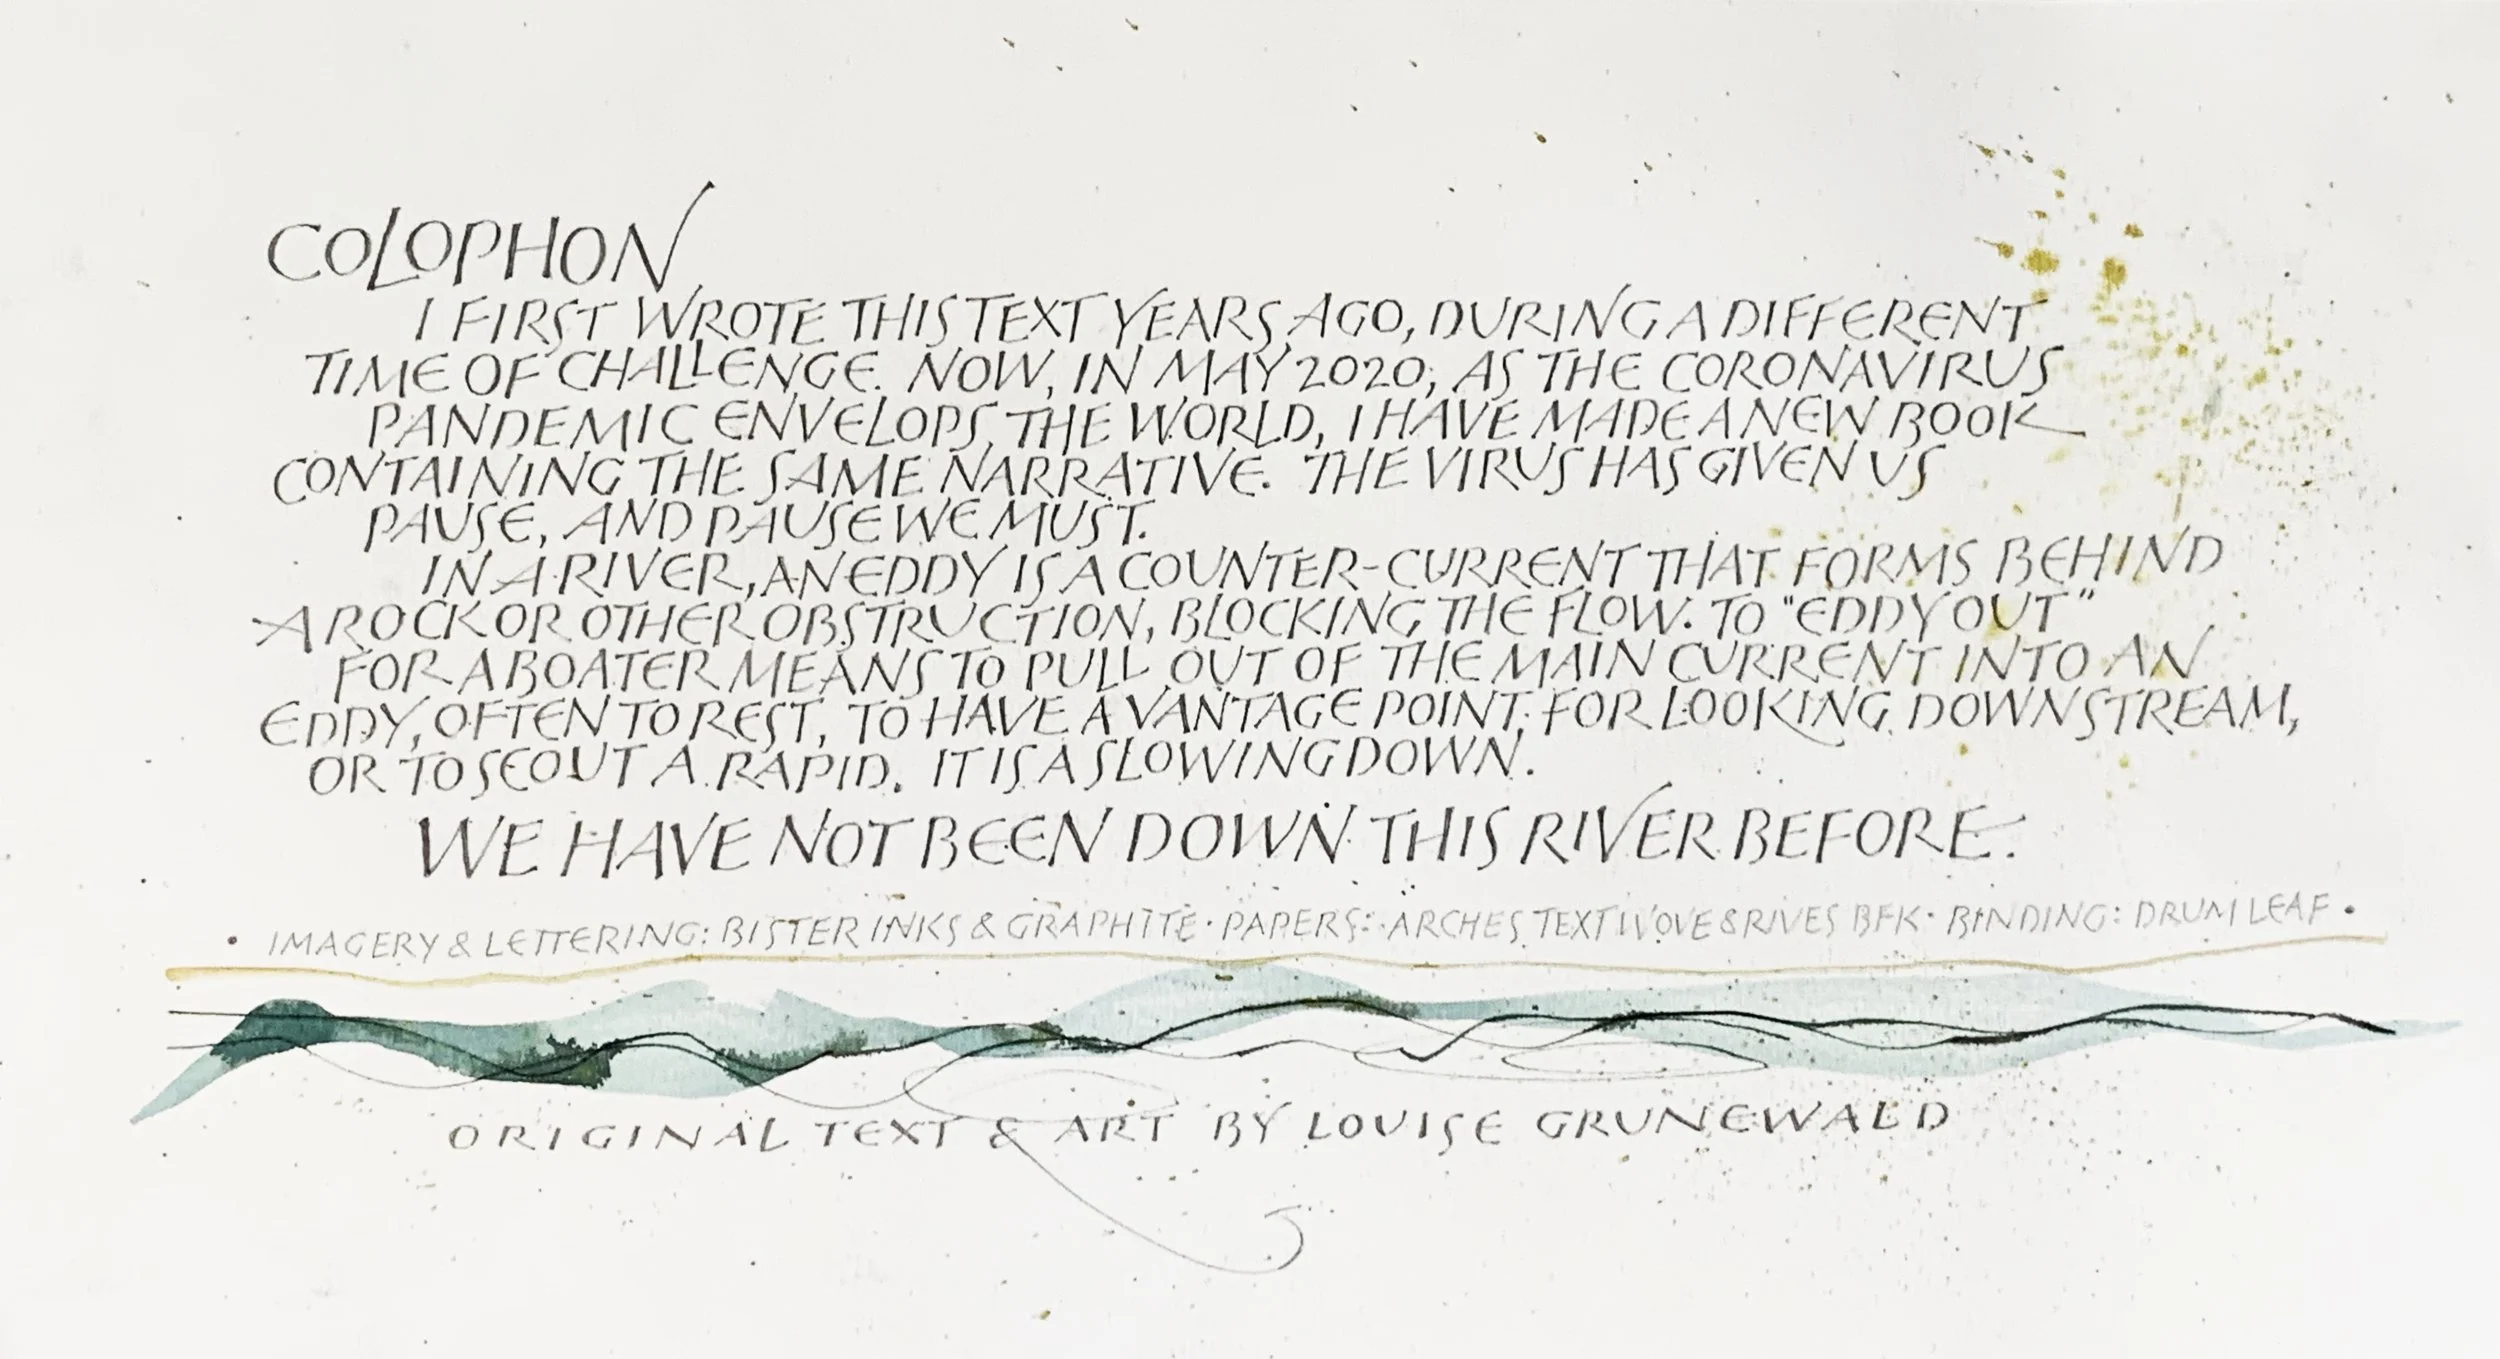 COLOPHON
I FIRST WROTE THIS TEXT YEARS AGO, DURING A DIFFERENT
TIME OF CHALLENGE. NOW, IN MAY 2020, AS THE CORONAVIRUS
PANDEMIC ENVELOPS THE WORLD, I HAVE MADE A NEW BOOK
CONTAINING THE SAME NARRATIVE. THE VIRUS HAS GIVEN US
PAUSE, AND PAUSE WE MUST.
IN A RIVER, AN EDDY IS A COUNTER-CURRENT THAT FORMS BEHIND
A ROCK OR OTHER OBSTRUCTION, BLOCKING THE FLOW. TO "EDDY OUT"
FOR A BOATER MEANS TO PULL OUT OF THE MAIN CURRENT INTO AN
EDDY, OFTEN TO REST, TO HAVE A VANTAGE POINT FOR LOOKING DOWNSTREAM,
OR TO SCOUT A RAPID. IT IS A SLOWING DOWN.
WE HAVE NOT BEEN DOWN THIS RIVER BEFORE.
• IMAGERY & LETTERING: BISTER INKS & GRAPHITE • PAPERS: ARCHES TEXT WOVE & RIVES BFK • BINDING: DRUM LEAF •
ORIGINAL TEXT & ART BY LOUISE GRUNEWALD